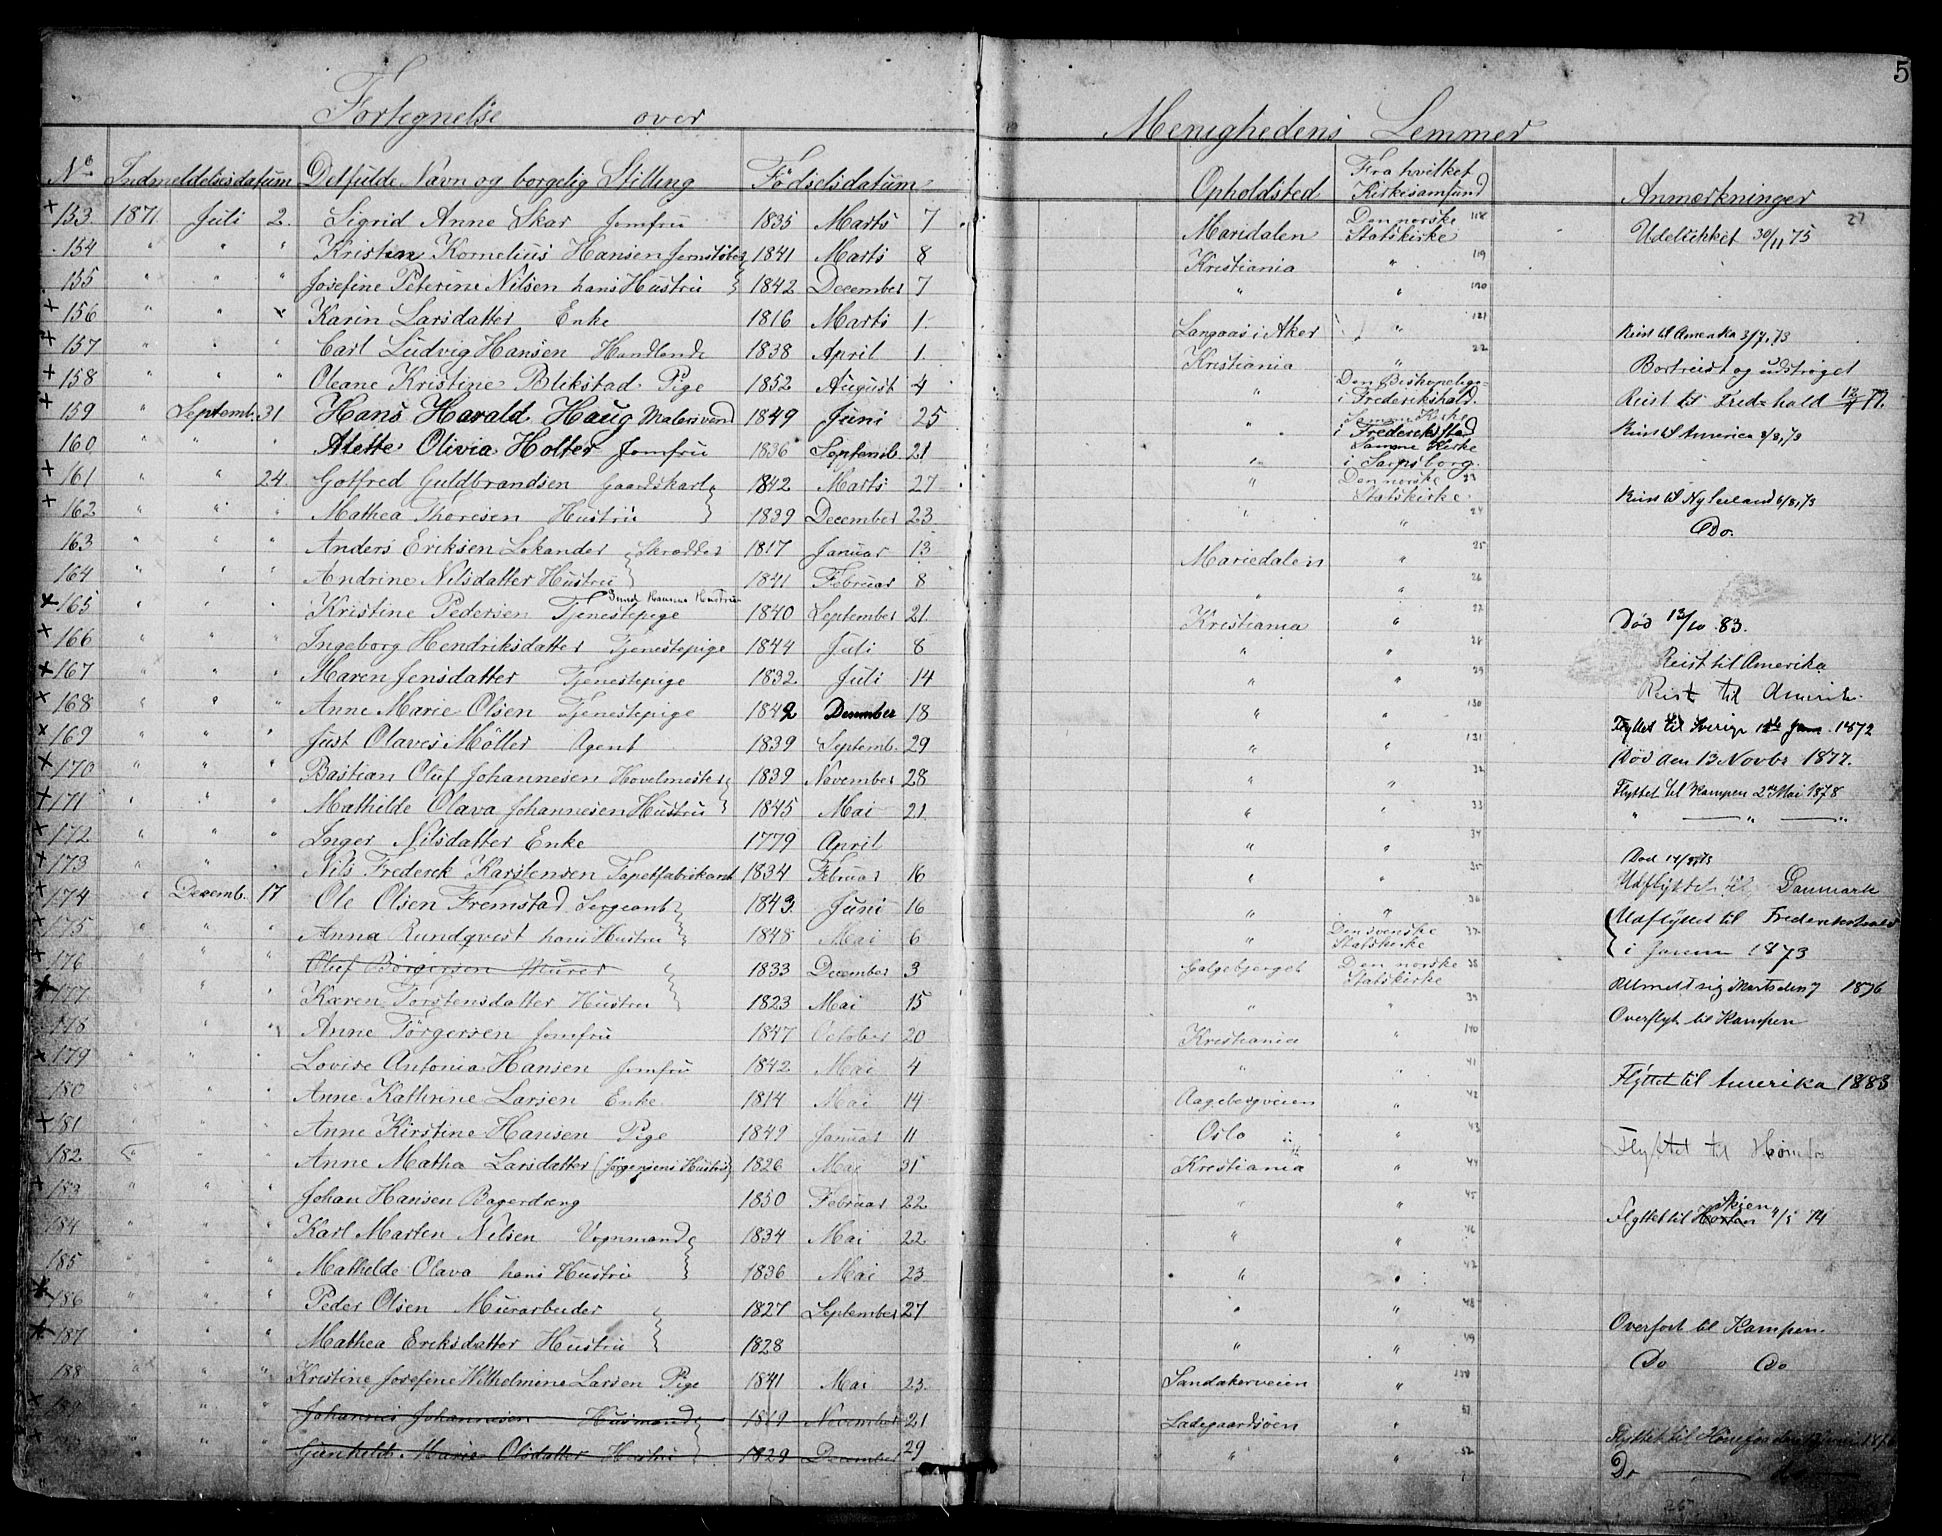 5
Fortegnelse over Menighedens Lemmer
No Indmeldelsesdatum Det fulde Navn og borgelig Stilling Fødselsdatum Opholdsted Fra hvilket Kirkesamfund Anmærkninger
+ 153 1871 Juli 2. Sigrid Anne Skar Jomfru 1835 Marts 7 Maridalen Den norske Statskirke 118 Udelukket 30/11 75 27
154 " " " Kristian Kornelius Hansen Jernstøber 1841 Marts 8 Kristiania " 119
155 " " " Josefine Peterine Nilsen hans Hustru 1842 December 7 " " 120
+ 156 " " " Karin Larsdatter Enke 1816 Marts 1. Langaas i Aker " 121 Reist til Amerika 3/7, 73
+ 157 " " " Carl Ludvig Hansen Handlende 1838 April 1. Kristiania " 22 Bortreist og udstrøget
+ 158 " " " Oleane Kristine Blikstad Pige 1852 August 4 " Den Biskopelige i Frederikshald. Reist til Fredrhald
+ 159 " Septemb. 31 Hans Harald Haug Malersvend 1849 Juni 25 " Samme Kirke i Frederikstad Reist til America 2/8, 73
160 " " Alette Olivia Holter Jomfru 1836 Septemb. 21 " Samme Kirke i Sarpsborg.
+ 161 " " 24 Gotfred Guldbrandsen Gaardskarl 1842 Marts 27 " Den norske Statskirke 23 Reist til Ny Seeland 6/8, 73
+ 162 " " " Mathea Thoresen Hustru 1839 December 23. " " 24 Do.
163 " " " Anders Eriksen Lokander Skrædder 1817 Januar 13 Mariedalen " 25
164 " " " Andrine Nilsdatter Hustru 1841 Februar 8 " " 26
x 165 " " " Kristine Pedersen Tjenestepige 1840 September 21. Kristiania " 27 Død 13/10 83.
+ 166 " " " Ingeborg Hendriksdatter Tjenestepige 1844 Juli 8 " " 28 Reist til Amerika
x 167 " " " Maren Jensdatter Tjenestepige 1832 Juli 14 " " 29 Reist til Amerik
x 168 " " " Anne Marie Olsen Tjenestepige 1842 December 18 " " 130 Flyttet til Sverige Jan. 1872
x 169 " " " Just Olaves Möller Agent 1839 Septemb. 29 " " 131 Død den 13 Novbr 1877.
x 170 " " " Bastian Oluf Johannesen Hovelmester 1839 November 28 " " 32 Flyttet til Kampen 2den Mai 1878
+ 171 " " " Mathilde Olava Johannesen Hustru 1845 Mai 21 " " 33 " " "
x 172 " " " Inger Nilsdatter Enke 1779 April " " 34 Død
x 173 " " Nils Frederek Karstensen Tapetfabrikant 1834 Februar 16 " " 35 Udflyttet til Danmark
+ 174 " Decemb. 17 Ole Olsen Fremstad Sergeant 1843. Juni 16 " " 36 Udflyttet til Frederikshald
x 175 " " " Anna Rundqvest hans Hustru 1848 Mai 6 " Den svenske Statskirke 37 i Januar 1873
x 176 " " " Oluf Börgersen Murer 1833 December 3 Galgebjerget Den norske Statskirke 38 Udmeldt sig Marts den 7 1876
x 177 " " Karen Torstensdatter Hustru 1823 Mai 15 " " 39 Overflyt til Kampen
178 " " " Anne Törgersen Jomfru 1847 October 20 Kristiania " 140
x 179 " " " Lovise Antonia Hansen Jomfru 1842 Mai 4 " " 41 Flyttet til Amerika 1883
180 " " " Anne Kathrine Larsen Enke 1814 Mai 14 Aagebergveien " 42
+ 181 " " " Anne Kirstine Hansen Pige 1849 Januar 11 Oslo " 43 Flyttet til Hønefos
182 " " " Anne Mathea Larsdatter (Jørgensens Hustru) 1826 Mai 31 Kristiania " 44
+ 183 " " " Johan Hansen Bagerdreng 1850 Februar 22 " " 45 Flyttet til Horten Skien 4/5 74
184 " " " Karl Marten Nilsen Vognmand 1834 Mai 22 " " 46
185 " " " Mathelde Olava hans Hustru 1836 Mai 23. " " 42
x 186 " " " Peder Olsen Murarbeider 1827 September 27 " " 48 Overført til Kampen.
x 187 " " " Mathea Ereksdatter Hustru 1828 " " 49 Do Do
188 " " " Kristine Josefine Wilhelmine Larsen Pige 1841 Mai 23. Sandakerveien " 150
x 189 " " " Johannes Johannesen Husmand 1819 November 21 Ladegaardsöen " 51 Flyttet til Hönefos
+ " " " Gunhelde Marie Olsdatter Hustru 1829 December 29 " " 52 Do